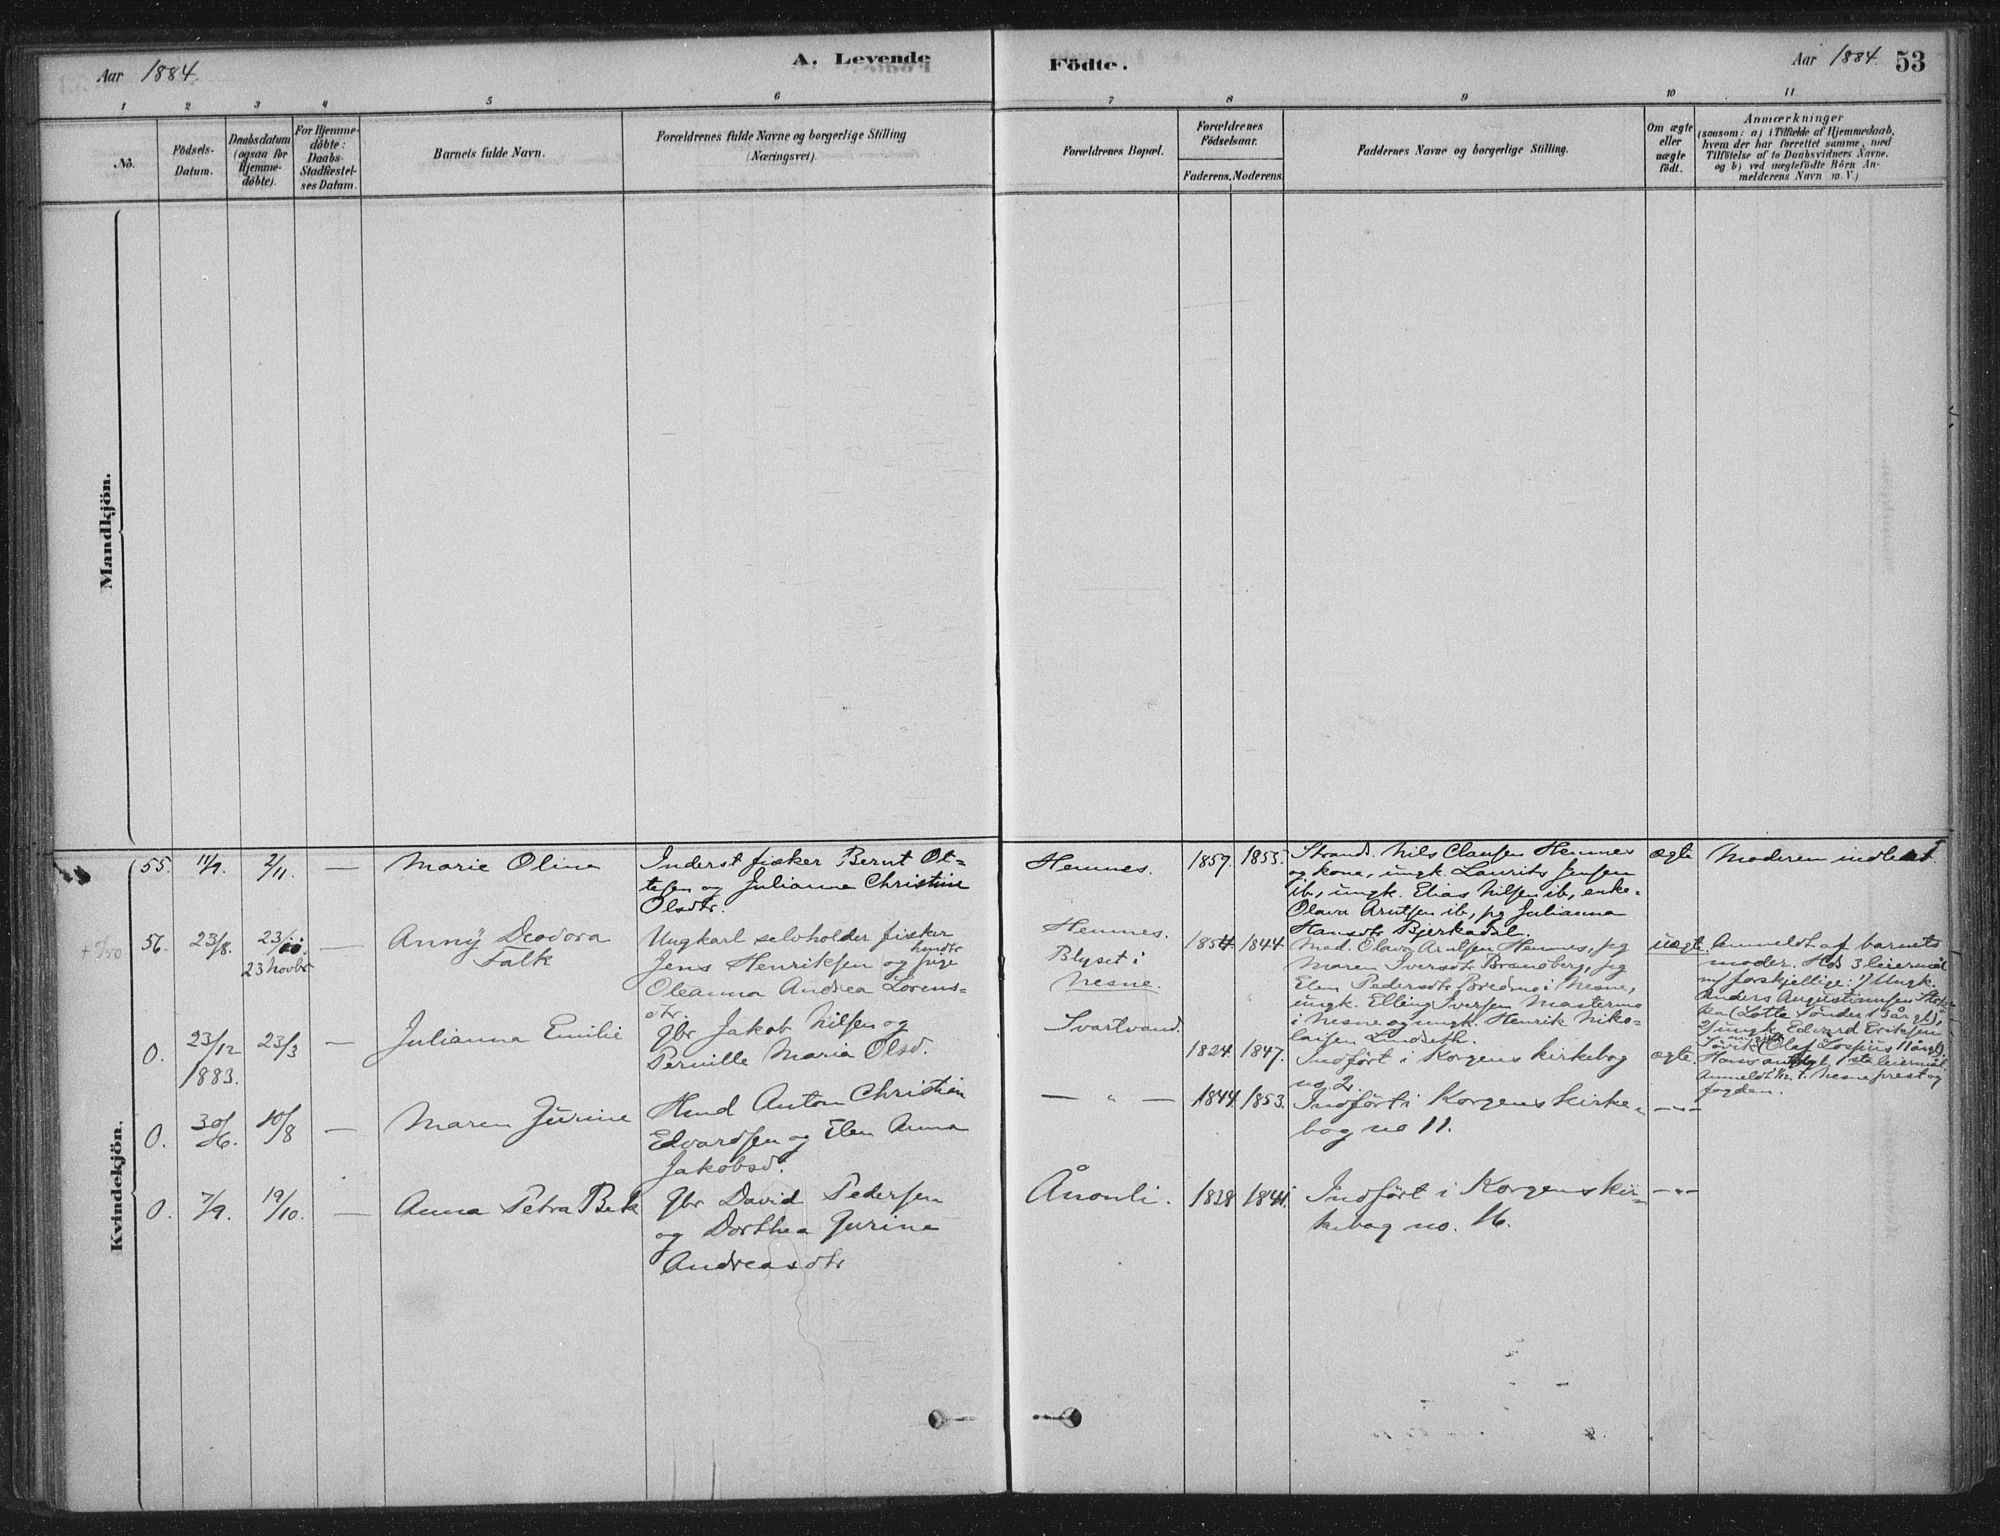 Aar 1884.
A. Levende
Födte.
Aar 1884.
53
1 2 3 4 5 6 7 8 9 10 11
No.
Födsels-
Datum.
Daabsdatum
(ogsaa for
Hjemme-
döbte).
For Hjemme-
döbte:
Daabs-
Stadfæstel-
ses Datum.
Barnets fulde Navn.
Forældrenes fulde Navne og borgerlige Stilling
(Næringsvei).
Forældrenes Bopæl.
Forældrenes
Födselsaar.
Faderens. Moderens.
Faddernes Navne og borgerlige Stilling.
Om ægte
eller
uægte
födt.
Anmærkninger
(saasom: a) i Tilfælde af Hjemmedaab,
hvem der har forrettet samme, med
Tilföielse af to Daabsvidners Navne.
og b) ved uægtefödte Börn An-
melderens Navn m. V.)
Mandkjön.
Kvindekjön.
55.
11/9.
2/11.
—
Marie Olina
Inderst fisker Bernt Ot-
tesen og Julianna Christine
Olsdtr.
Hemnes.
1857. 1855.
Strands. Nils Clausen Hemnes
og kone, ungk. Laurits Jensen
ib, ungk. Elias Nilsen ib, enke-
Olava Arntsen ib, pg Julianna
Hansdtr Bjerkadal.
ægte
Moderen indledt.
56.
23/8.
23/
23 Novbr
—
Anny Deodora
Falk
Ungkarl selvholder fisker
Jens Henriksen og pige
Oleanna Andrea Lorens-
dtr.
Hemnes.
Blyset i
Nesne.
1854. 1844
Mad. Olava Arntsen Hemnes, pg
Maren Iversdtr Brandberg, pg
Elen Pedersdtr Bredmo i Nesne,
ungk. Elling Iversen Mastermo
i Nesne og ungk. Henrik Niko-
laisen Lindseth.
uægte
Anmeldt af barnets
moder. Hds 3 leiermål
m/ forskjellige: 1/ Ungk.
Anders Augustinussen
2/ ungk Edvard Eriksen
Hans antagl 1ste leiermål.
Anmeldt t. Nesne prest og
fogden.
0.
23/12
1883.
23/3
—
Julianna Emilie
Gbr Jakob Nilsen og
Pernille Maria Olsd.
Svartvand.
1824. 1847.
Indført i Korgens kirkebog
no 2.
ægte
0.
30/6.
10/8
—
Maren Jürine
Hmd Anton Christian
Edvardsen og Elen Anna
Jakobsd.
— " —
1844. 1853.
Indført i Korgens kirke-
bog no 11.
—"—
0.
7/9.
19/10.
—
Anna Petra Bek
Gbr David Pedersen
og Dorthea Jurine
Andreasdtr
Ånonli.
1828 1841.
Indført i Korgens kir-
kebog no. 16.
—"—